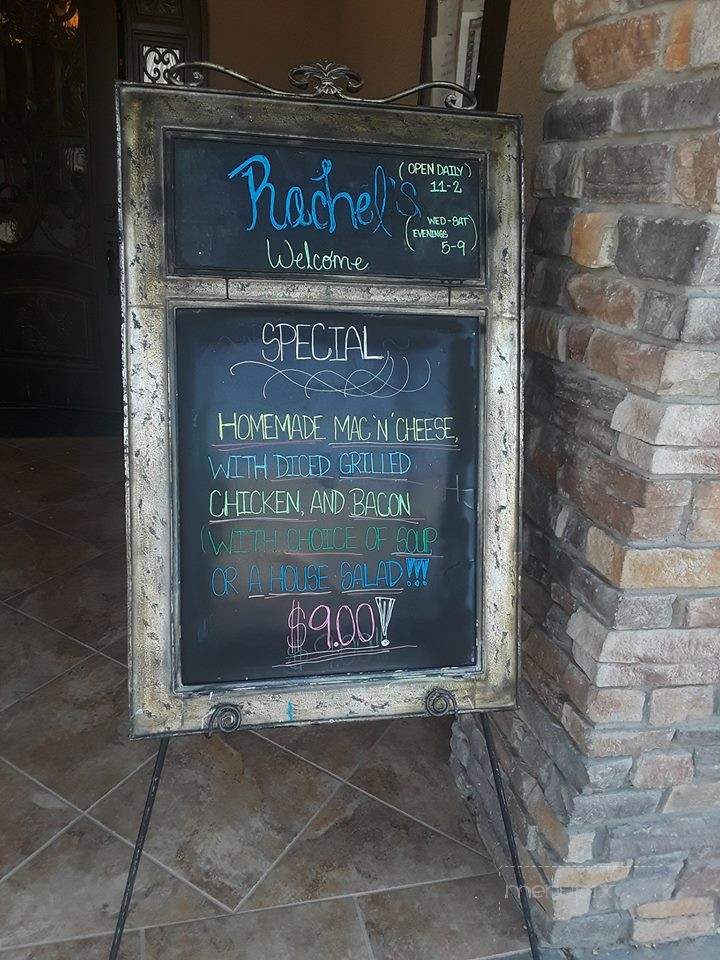 Rachel's
(OPEN DAILY)
11-2
(WED-SAT
EVENINGS
5-9)
Welcome
SPECIAL
HOMEMADE MAC 'N' CHEESE,
WITH DICED GRILLED
CHICKEN, AND BACON
(WITH CHOICE OF SOUP
OR A HOUSE SALAD!!!
$9.00!